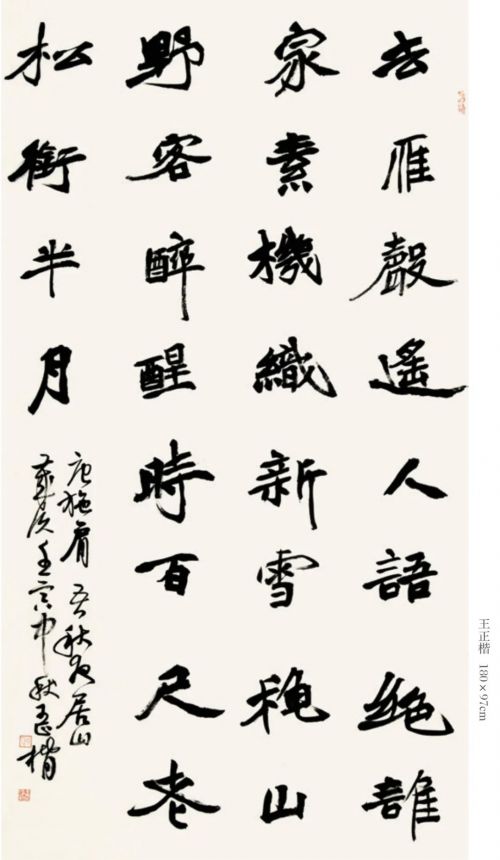 去雁聲遙人語絶誰
家素機織新雪穐山
野客醉醒時百尺老
松銜半月
唐施肩吾秋夜居山
歲次壬寅中秋正楷
王正楷 180×97cm